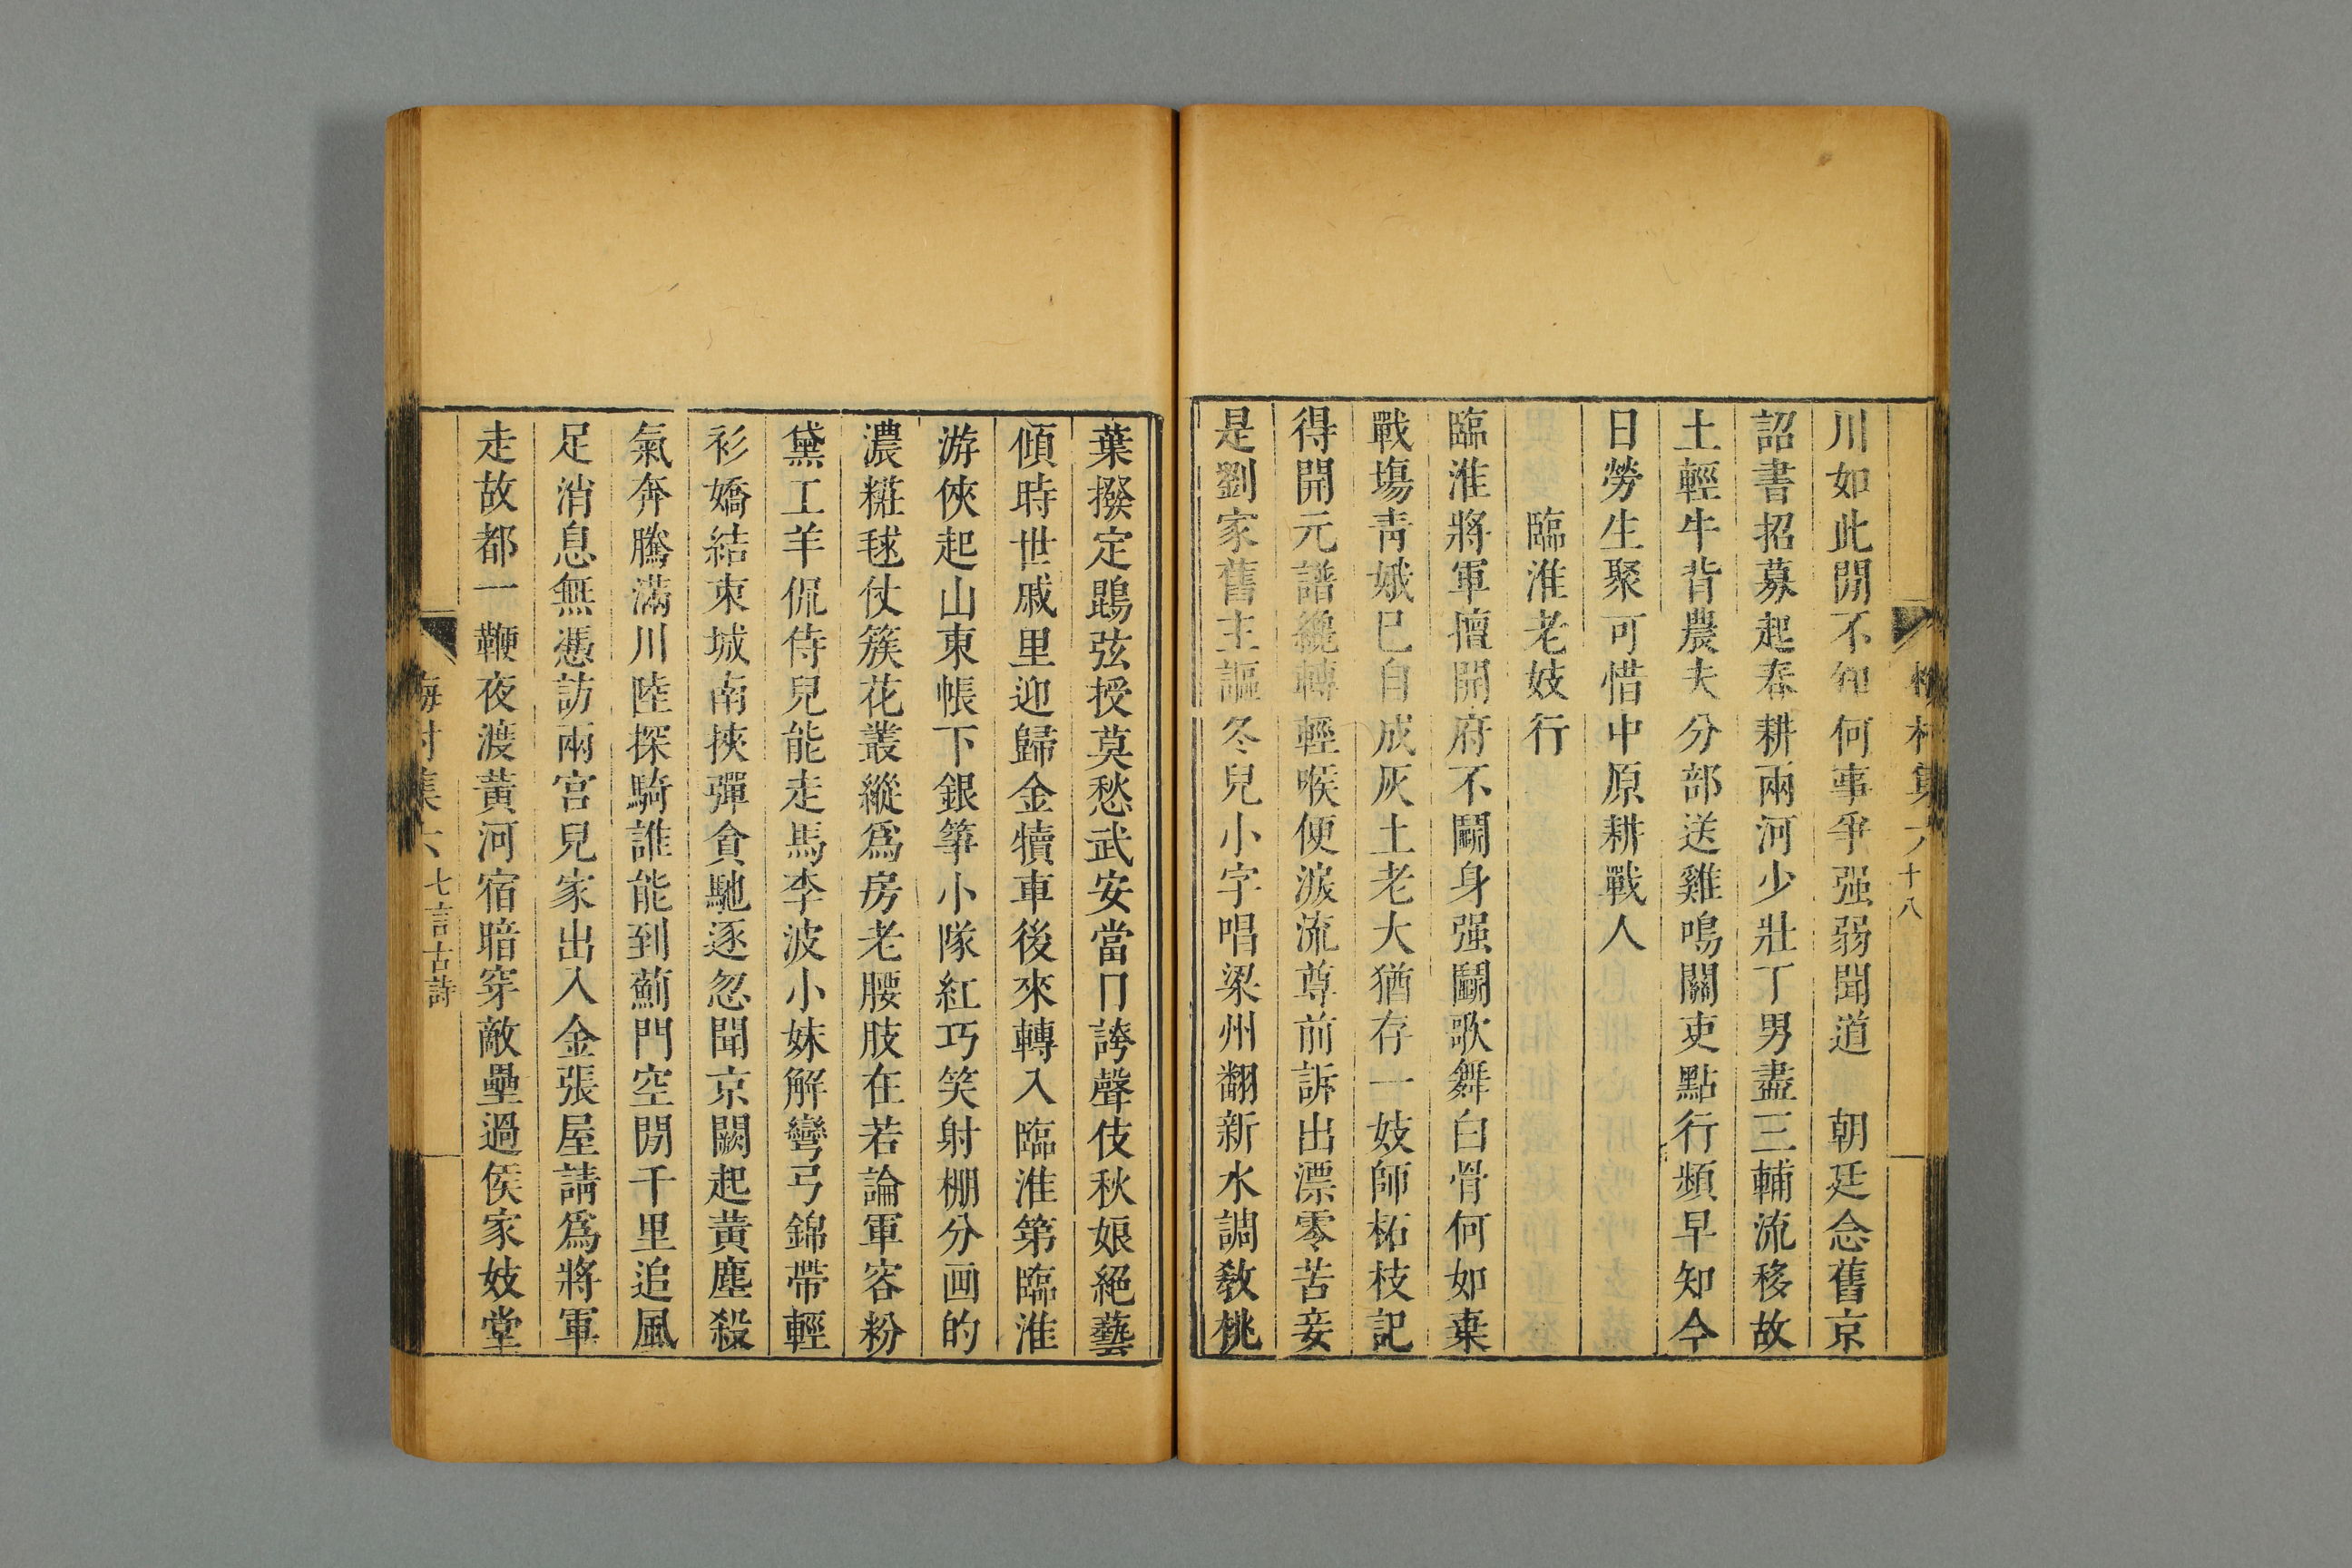 梅村集六
十八
川如此閒不知何事爭强弱聞道　朝廷念舊京
詔書招募起春耕兩河少壯丁男盡三輔流移故
土輕牛背農夫分部送雞鳴關吏點行頻早知今
日勞生聚可惜中原耕戰人
臨淮老妓行
臨淮將軍擅開府不鬬身强鬬歌舞白骨何如棄
戰塲靑娥已自成灰土老大猶存一妓師柘枝記
得開元譜纔轉輕喉便淚流尊前訴出漂零苦妾
是劉家舊主謳冬兒小字唱梁州翻新水調敎桃
葉撥定鵾弦授莫愁武安當門誇聲伎秋娘絕藝
傾時世戚里迎歸金犢車後來轉入臨淮第臨淮
游俠起山東帳下銀箏小隊紅巧笑射棚分画的
濃糚毬仗簇花叢縱爲房老腰肢在若論軍容粉
黛工羊侃侍兒能走馬李波小妹解彎弓錦帶輕
衫嬌結束城南挾彈貪馳逐忽聞京闕起黃塵殺
氣奔騰滿川陸探騎誰能到薊門空閒千里追風
足消息無憑訪兩宮兒家出入金張屋請爲將軍
走故都一鞭夜渡黃河宿暗穿敵壘過侯家妓堂
梅村集六
七言古詩